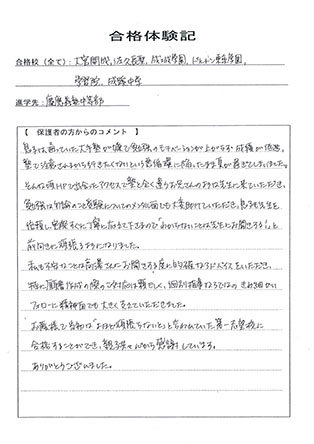 合格体験記
合格校(全て):大宮開成、佐久長聖、成城学園、ドルトン東京学園、
学習院、成蹊中学
進学先:慶應義塾中等部
【 保護者の方からのコメント 】
息子は通っていた大手塾が嫌で勉強のモチベーションが上がらず成績が低迷。
塾で注意されるから行きたくないという悪循環に陥ったまま夏が過ぎてしまいました。
そんな頃に出会ったアクセスで塾と全く違うお兄さんのような先生に来ていただき、
勉強以外のこと受験についてのメンタル面でも大変助けていただき、息子も先生を
信頼し、質問すぐに丁寧に応えて下さるので「わからないことは先生にお聞きする!」と
前向きに頑張るようになりました。
私も不安なことは
お聞きする度に的確なアドバイスをいただき、
特に願書作成の際のご対応は頼もしく、個別指導ならではのきめ細かい
フォローに精神面でも大きく支えていただきました。
お蔭様で当初は「よほど頑張らないと」と言われていた第一志望校に
合格することができ、親子共々心から感謝しています。
ありがとうございました。